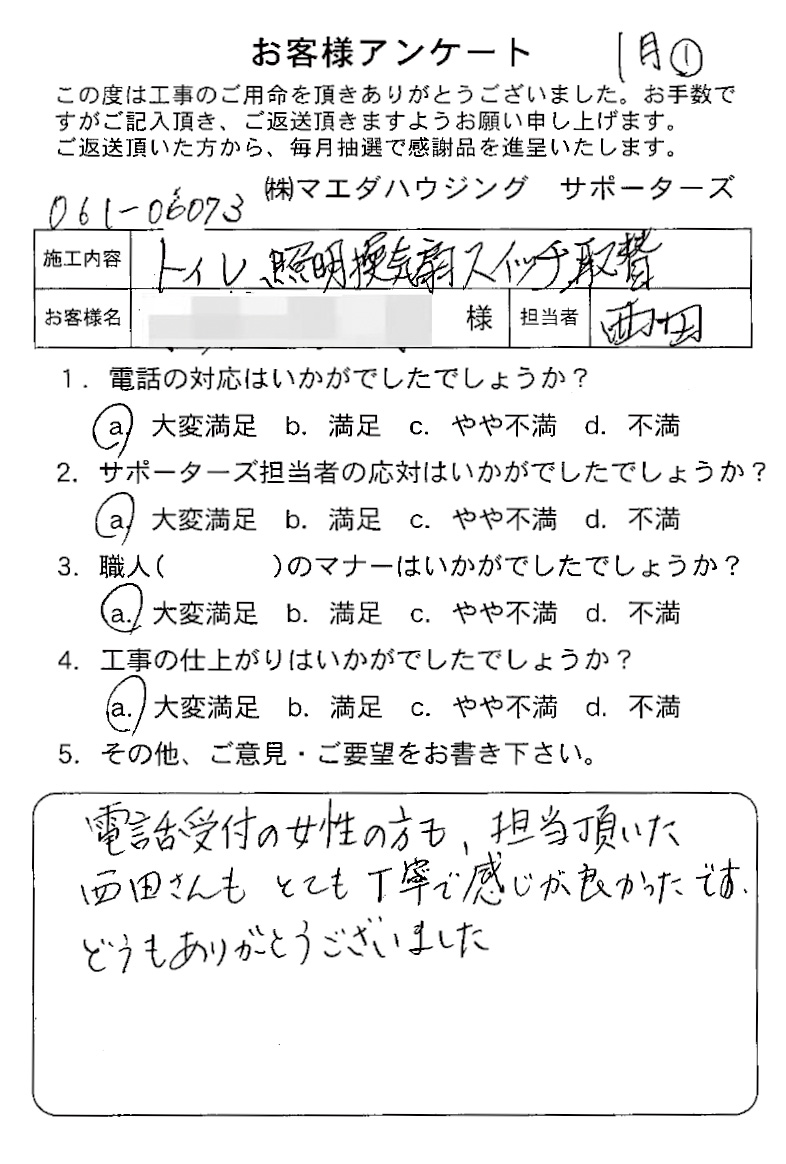 お客様アンケート 1月①
この度は工事のご用命を頂きありがとうございました。お手数で
すがご記入頂き、ご返送頂きますようお願い申し上げます。
ご返送頂いた方から、毎月抽選で感謝品を進呈いたします。
061-06073 ㈱マエダハウジング サポーターズ
施工内容 トイレ、照明換気扇スイッチ取替
お客様名 様 担当者 西田
1. 電話の対応はいかがでしたでしょうか？
a. 大変満足 b. 満足 c. やや不満 d. 不満
2. サポーターズ担当者の応対はいかがでしたでしょうか？
a. 大変満足 b. 満足 c. やや不満 d. 不満
3. 職人( )のマナーはいかがでしたでしょうか？
a. 大変満足 b. 満足 c. やや不満 d. 不満
4. 工事の仕上がりはいかがでしたでしょうか？
a. 大変満足 b. 満足 c. やや不満 d. 不満
5. その他、ご意見・ご要望をお書き下さい。
電話受付の女性の方も、担当頂いた
西田さんもとても丁寧で感じが良かったです.
どうもありがとうございました